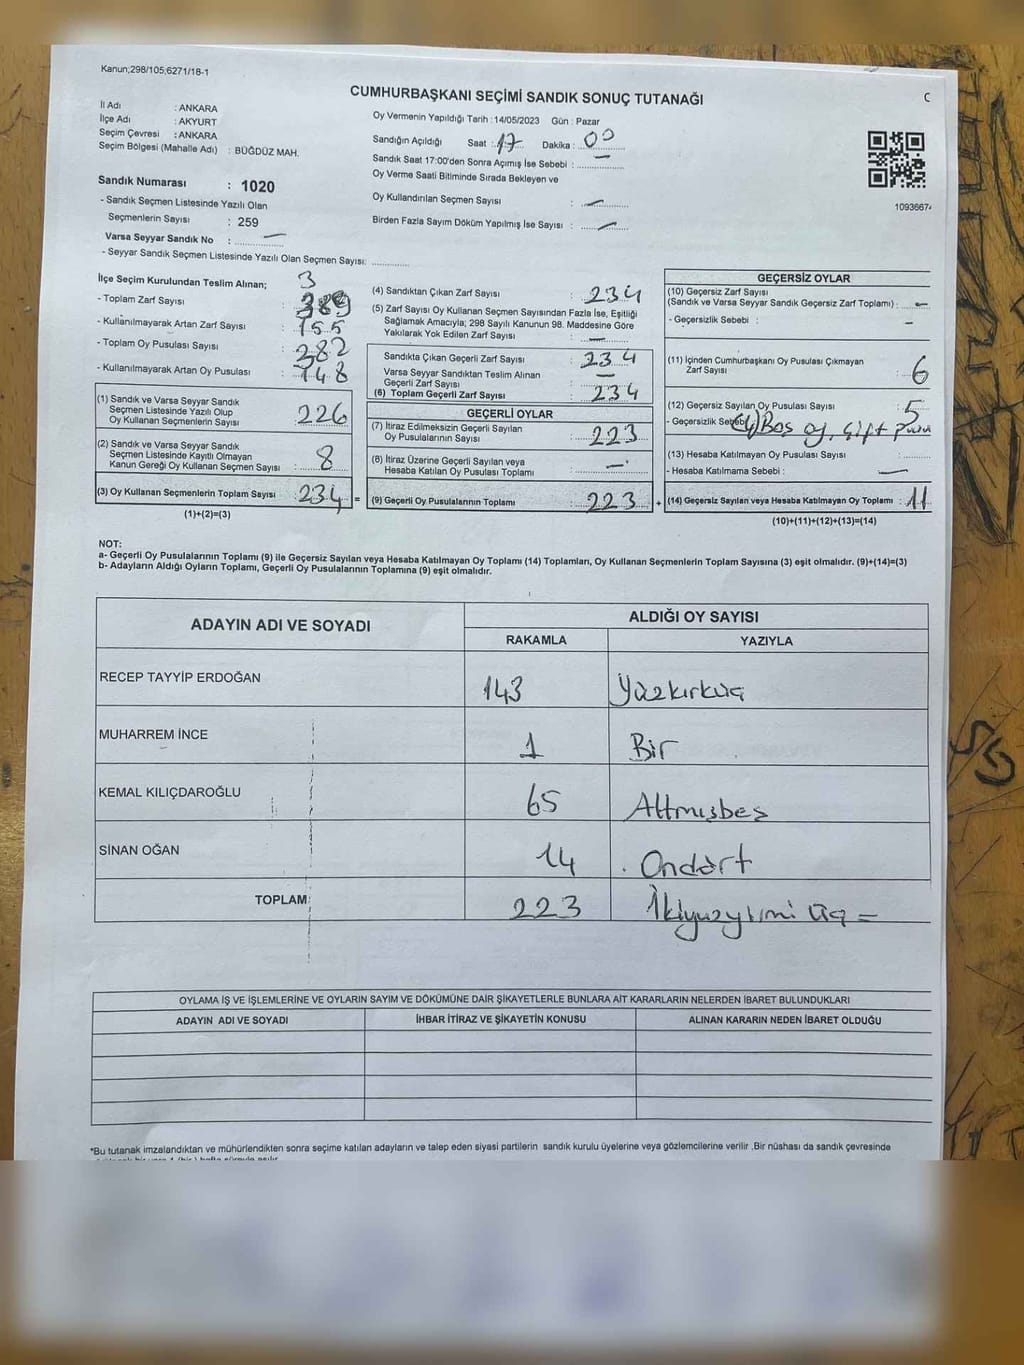 Kanun;298/105;6271/18-1
CUMHURBAŞKANI SEÇİMİ SANDIK SONUÇ TUTANAĞI
C
İl Adı : ANKARA
İlçe Adı : AKYURT
Seçim Çevresi : ANKARA
Seçim Bölgesi (Mahalle Adı) : BÜĞDÜZ MAH.
Sandık Numarası : 1020
- Sandık Seçmen Listesinde Yazılı Olan
Seçmenlerin Sayısı : 259
Varsa Seyyar Sandık No : —
- Seyyar Sandık Seçmen Listesinde Yazılı Olan Seçmen Sayısı: ............
Oy Vermenin Yapıldığı Tarih : 14/05/2023 Gün : Pazar
Sandığın Açıldığı Saat : 17 Dakika : 00
Sandık Saat 17:00'den Sonra Açımış İse Sebebi : —
Oy Verme Saati Bitiminde Sırada Bekleyen ve
Oy Kullandırılan Seçmen Sayısı : —
Birden Fazla Sayım Döküm Yapılmış İse Sayısı : —
1093667
İlçe Seçim Kurulundan Teslim Alınan;
3
- Toplam Zarf Sayısı : 389
- Kullanılmayarak Artan Zarf Sayısı : 155
- Toplam Oy Pusulası Sayısı : 382
- Kullanılmayarak Artan Oy Pusulası : 148
(1) Sandık ve Varsa Seyyar Sandık
Seçmen Listesinde Yazılı Olup
Oy Kullanan Seçmenlerin Sayısı : 226
(2) Sandık ve Varsa Seyyar Sandık
Seçmen Listesinde Kayıtlı Olmayan
Kanun Gereği Oy Kullanan Seçmen Sayısı : 8
(3) Oy Kullanan Seçmenlerin Toplam Sayısı : 234 =
(1)+(2)=(3)
(4) Sandıktan Çıkan Zarf Sayısı : 234
(5) Zarf Sayısı Oy Kullanan Seçmen Sayısından Fazla İse, Eşitliği
Sağlamak Amacıyla; 298 Sayılı Kanunun 98. Maddesine Göre
Yakılarak Yok Edilen Zarf Sayısı : —
Sandıkta Çıkan Geçerli Zarf Sayısı : 234
Varsa Seyyar Sandıktan Teslim Alınan
Geçerli Zarf Sayısı : —
(6) Toplam Geçerli Zarf Sayısı : 234
GEÇERLİ OYLAR
(7) İtiraz Edilmeksizin Geçerli Sayılan
Oy Pusulalarının Sayısı : 223
(8) İtiraz Üzerine Geçerli Sayılan veya
Hesaba Katılan Oy Pusulası Toplamı : —
(9) Geçerli Oy Pusulalarının Toplamı : 223 +
GEÇERSİZ OYLAR
(10) Geçersiz Zarf Sayısı
(Sandık ve Varsa Seyyar Sandık Geçersiz Zarf Toplamı) : —
- Geçersizlik Sebebi : —
(11) İçinden Cumhurbaşkanı Oy Pusulası Çıkmayan
Zarf Sayısı : 6
(12) Geçersiz Sayılan Oy Pusulası Sayısı : 5
- Geçersizlik Sebebi (4) Boş oy, Çift pusu
(13) Hesaba Katılmayan Oy Pusulası Sayısı : ........
- Hesaba Katılmama Sebebi : —
(14) Geçersiz Sayılan veya Hesaba Katılmayan Oy Toplamı : 11
(10)+(11)+(12)+(13)=(14)
NOT:
a- Geçerli Oy Pusulalarının Toplamı (9) ile Geçersiz Sayılan veya Hesaba Katılmayan Oy Toplamı (14) Toplamları, Oy Kullanan Seçmenlerin Toplam Sayısına (3) eşit olmalıdır. (9)+(14)=(3)
b- Adayların Aldığı Oyların Toplamı, Geçerli Oy Pusulalarının Toplamına (9) eşit olmalıdır.
ADAYIN ADI VE SOYADI
ALDIĞI OY SAYISI
RAKAMLA YAZIYLA
RECEP TAYYİP ERDOĞAN 143 Yüzkırküç
MUHARREM İNCE 1 Bir
KEMAL KILIÇDAROĞLU 65 Altmışbeş
SİNAN OĞAN 14 Ondört
TOPLAM: 223 İkiyüzyirmi üç =
OYLAMA İŞ VE İŞLEMLERİNE VE OYLARIN SAYIM VE DÖKÜMÜNE DAİR ŞİKAYETLERLE BUNLARA AİT KARARLARIN NELERDEN İBARET BULUNDUKLARI
ADAYIN ADI VE SOYADI İHBAR İTİRAZ VE ŞİKAYETİN KONUSU ALINAN KARARIN NEDEN İBARET OLDUĞU
*Bu tutanak imzalandıktan ve mühürlendikten sonra seçime katılan adayların ve talep eden siyasi partilerin sandık kurulu üyelerine veya gözlemcilerine verilir .Bir nüshası da sandık çevresinde